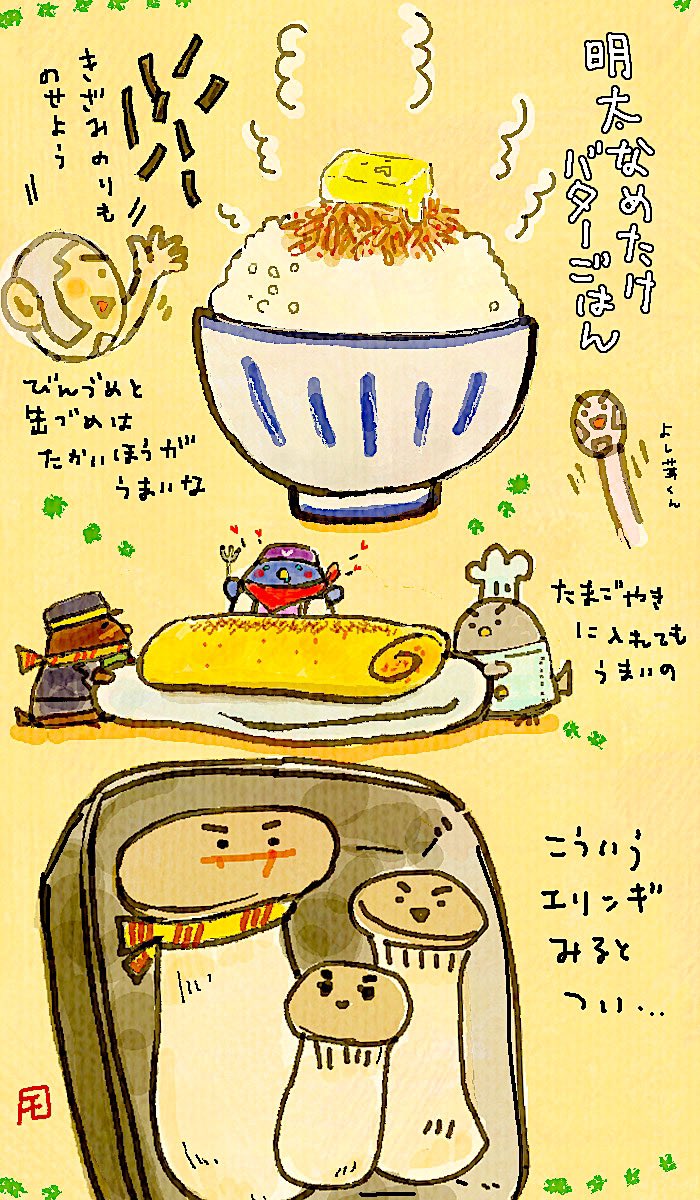 明太なめたけ
バターごはん
きざみのりも
のせよう
びんづめと
缶づめは
たかいほうが
うまいな
よし茸くん
たまごやき
に入れても
うまいの
こういう
エリンギ
みると
つい…